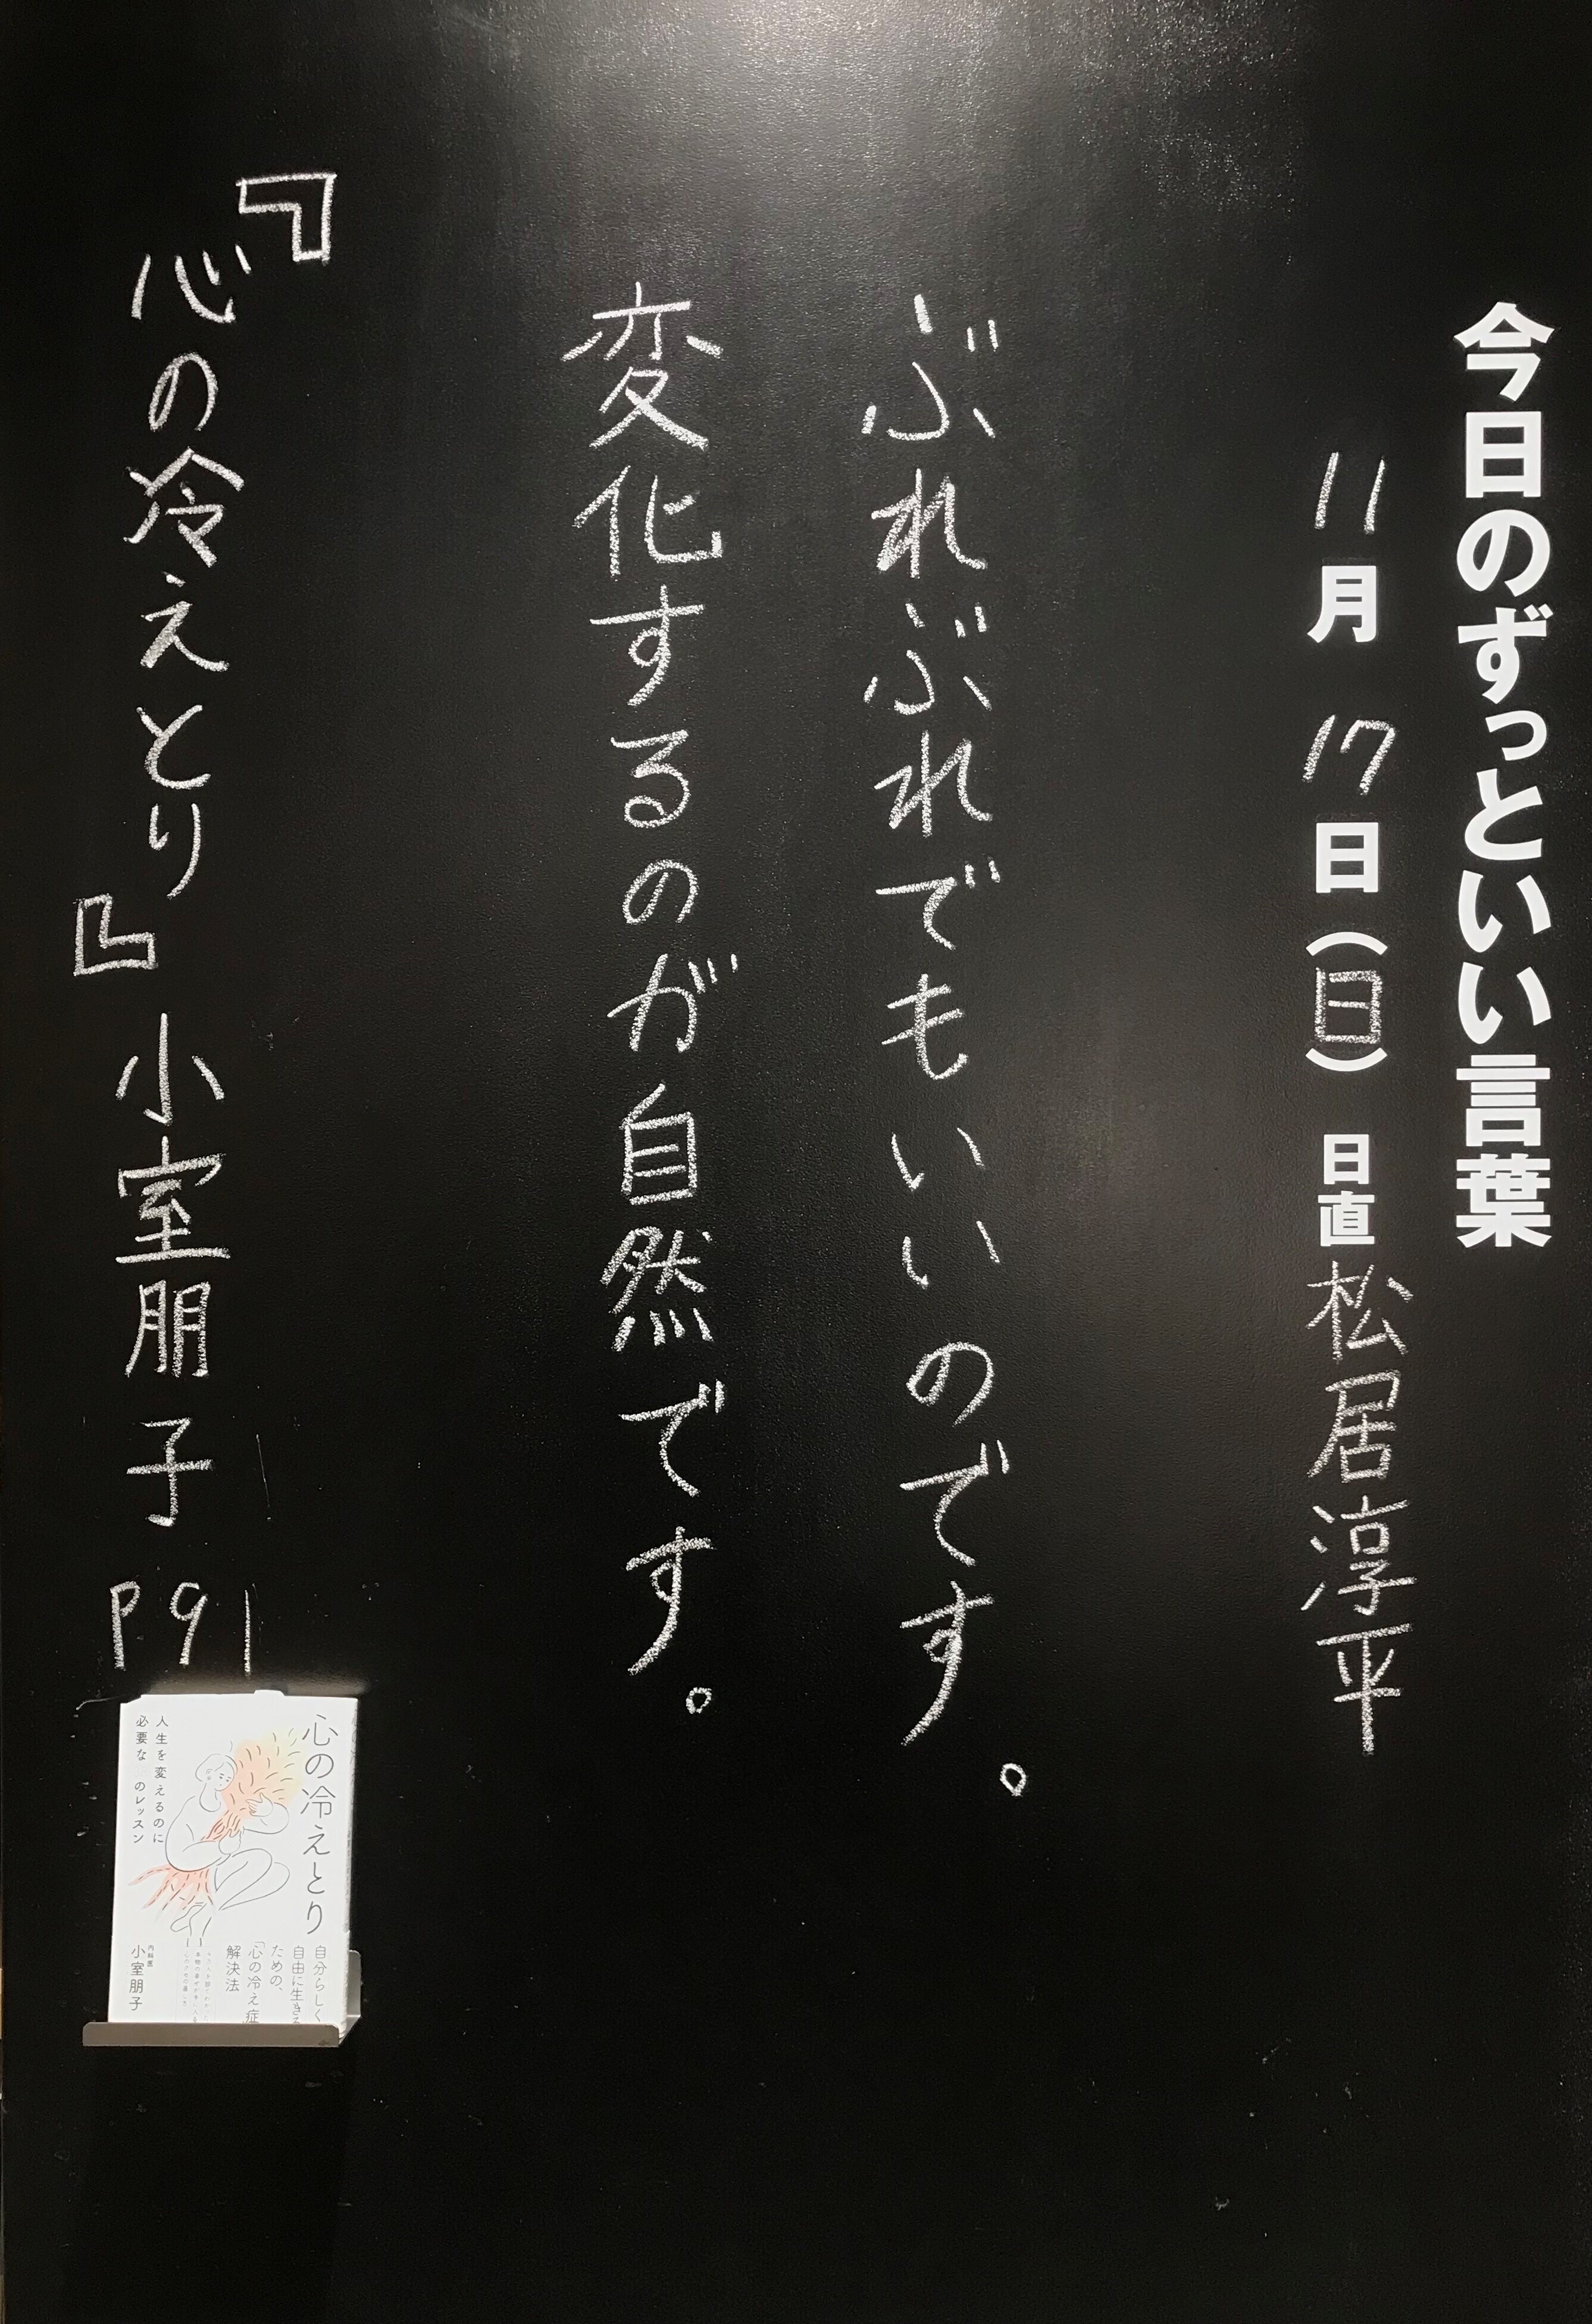 今日のずっといい言葉
11月17日（日）日直 松居淳平
ぶれぶれでもいいのです。
変化するのが自然です。
『心の冷えとり』小室朋子 P91
心の冷えとり
人生を変えるのに
必要な のレッスン
自分らしく
自由に生きる
ための、
「心の冷え症」
解決法
内科医
小室朋子